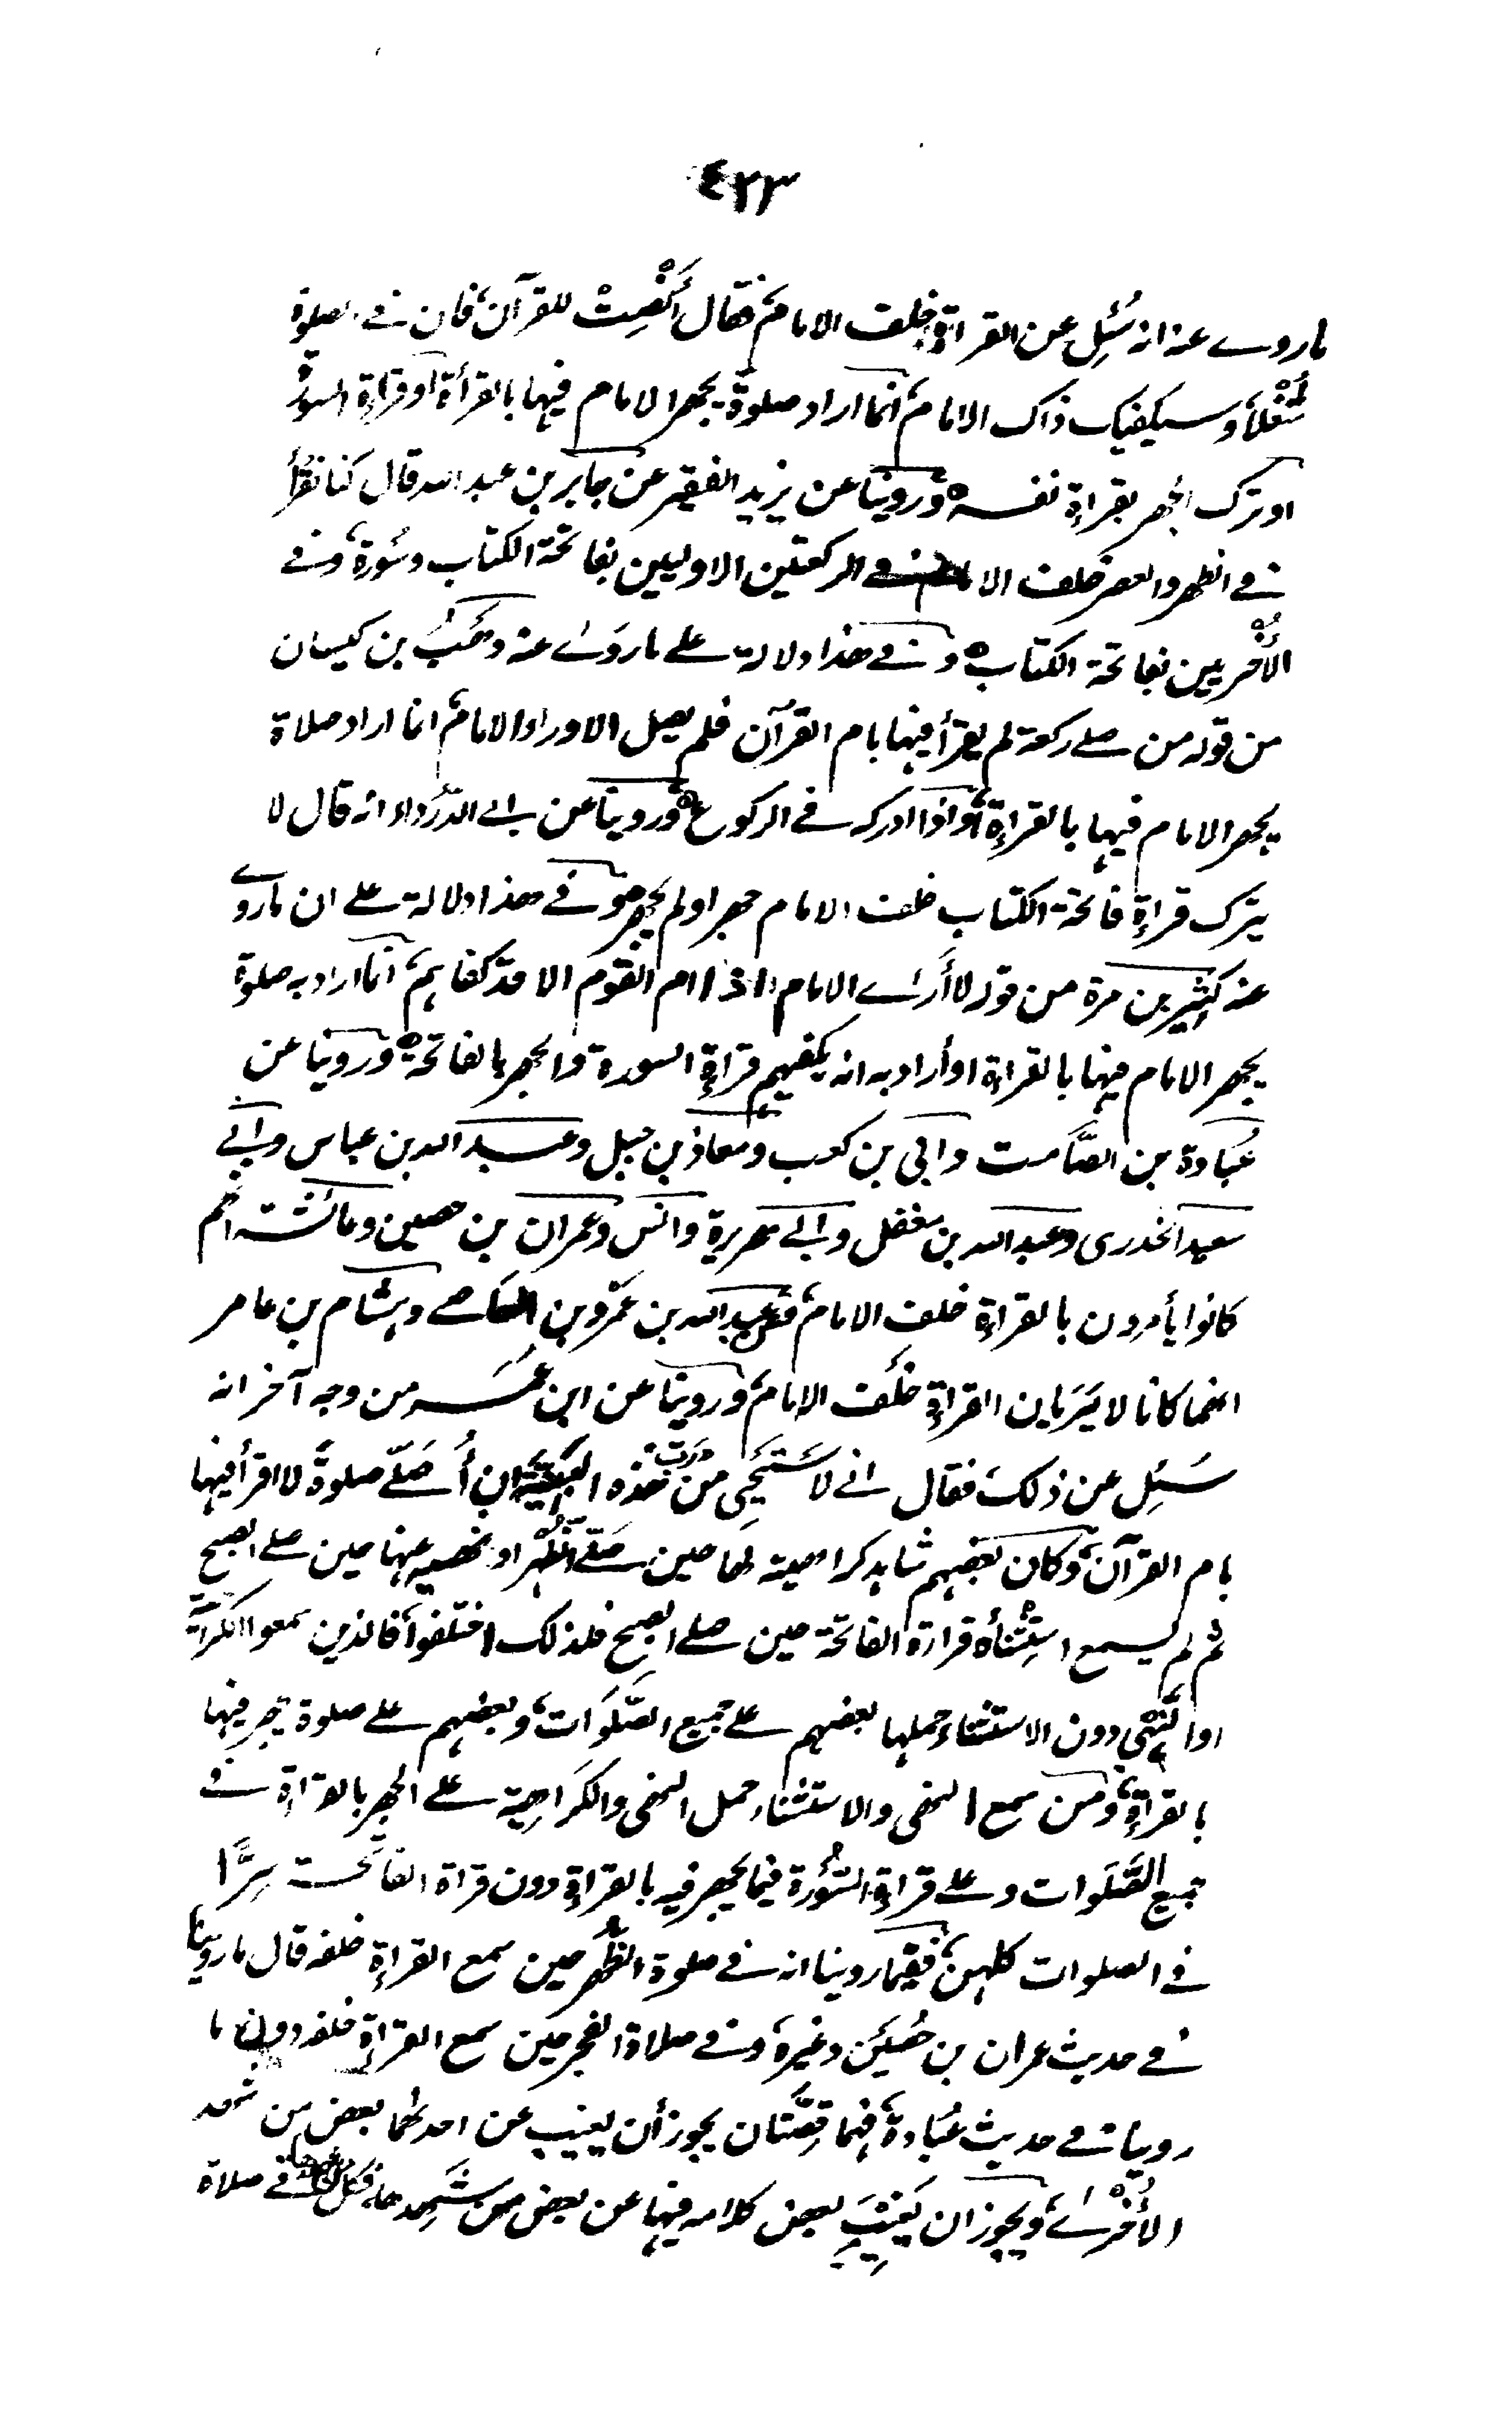 ٤٢٣
ما روے عنه انه سُئِل عن القراءة خلف الامام، فقال أَنْصِتْ للقرآن، فان فے الصلوة
شُغْلاً وسيكفيك ذاك الامام، انما اراد صلوة يجهر الامام فيها بالقرأة أو قراءة السورة
او ترك الجهر بقراءة نفسه ٥ وروينا عن يزيد الفقير عن جابر بن عبد الله قال كنا نقرأ
فے الظهر والعصر خلف الامام فے الركعتين الاوليين بفاتحة الكتاب وسُورة، وفے
الأُخْريين بفاتحة الكتاب ٥ وفے هذا دلالة علے ما روٰے عنه وهَبُ بن كيسان
من قوله من صلے ركعة لم يقرأ فيها بام القرآن فلم يصل الا وراء الامام، انما اراد صلاة
يجهر الامام فيها بالقراءة، أو اذا ادركه فے الركوع ٥ وروينا عن ابے الدَّرداء انه قال لا
يترك قراءة فاتحة الكتاب خلف الامام جهر او لم يجهر ٥ وفے هذا دلالة علے ان ما روے
عنه كثير بن مرة من قوله لا أَرٰے الامام اذا ام القوم الا قد كفاهم، انما اراد به صلوة
يجهر الامام فيها بالقراءة او أراد به انه يكفيهم قراءة السورة والجهر بالفاتحة ٥ وروينا عن
عُبَادة بن الصَّامت وابی بن كعب ومعاذ بن جبل وعبد الله بن عباس وابے
سعيد الخدری وعبد الله بن مغفل وابے هريرة وانس وعمران بن حصين وعائشة انهم
كانوا يأمرون بالقراءة خلف الامام، وعن عبد الله بن عمرو بن العاصے وهشام بن عامر
انهما كانا لا يَتركان القراءة خلْف الامام، وروينا عن ابن عمَر من وجه آخر انه
سُئِل عن ذلك فقال انے لأَسْتَحْيِی من رَبِّ هذه البَنِيَّةِ ان أُصَلّے صلوةً لا اقرأ فيها
بام القرآن، وكان بعضهم شاهد كراهيته لها حين صَلَّے الظُّهْر او نهيه عنها حين صلے الصبح
ثم لم يسمع اسِتْثناءه قراءة الفاتحة حين صلے الصبح فلذلك اختلفوا، فالذين سمعوا الكَرَاهية
او النَّهْی دون الاستثناء حملها بعضهم علے جميع الصَّلَوَات، وبعضهم علے صلوة يجهر فيها
بالقراءة، ومن سمع النهی والاستثناء حمل النهی والكَرَاهية علے الجهر بالقراءة فے
جميع الصَّلَوات وعلے قراءة السُّورة فيما يجهر فيه بالقراءة دون قراءة الفاتحة سِرًّا
فے الصلوات كلهن، ففيما روينا انه فے صلوة الظُّهر حين سمع القراءة خلفه قال ما روينا
فے حديث عمران بن حُصَيْن وغيره، وفے صلاة الفجر حين سمع القراءة خلفه دون ما
روينا فے حديث عُبَادة، فهما قِصَّتان يجوز أن يغيب عن احدٰهما بعض من شهد
الأُخْرٰے، ويجوز ان يَغِيْبَ بعض كلامه فيها عن بعض من شَهِدها، فكل فے صلاة